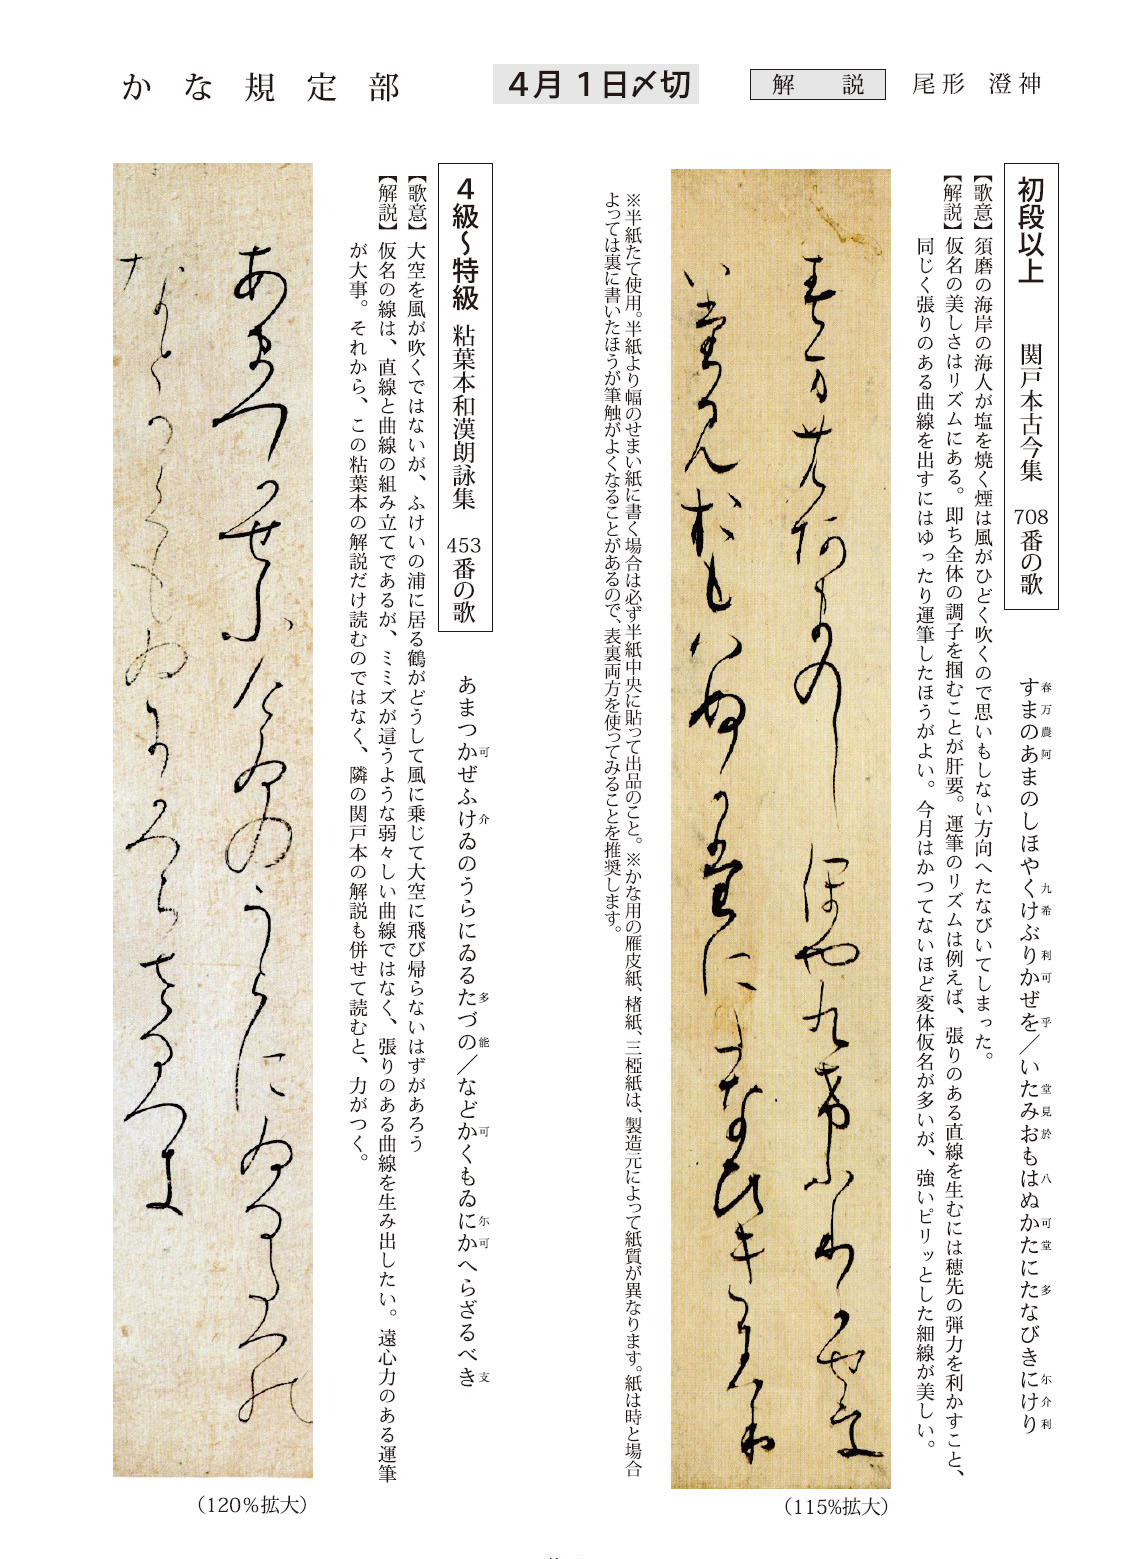 かな規定部
4月1日〆切
解説
尾形 澄神
初段以上 関戸本古今集 708番の歌
すまのあまのしほやくけぶりかぜを／いたみおもはぬかたにたなびきにけり
春万農阿 九希 利可 乎 堂見於 八 可堂 多 尓介利
【歌意】須磨の海岸の海人が塩を焼く煙は風がひどく吹くので思いもしない方向へたなびいてしまった。
【解説】仮名の美しさはリズムにある。即ち全体の調子を掴むことが肝要。運筆のリズムは例えば、張りのある直線を生むには穂先の弾力を利かすこと、
同じく張りのある曲線を出すにはゆったり運筆したほうがよい。今月はかつてないほど変体仮名が多いが、強いピリッとした細線が美しい。
春万農阿まのしほや九希ふり可せ乎
い堂見於も八ぬ可堂に多なひき尓介利
（115%拡大）
※半紙たて使用。半紙より幅のせまい紙に書く場合は必ず半紙中央に貼って出品のこと。※かな用の雁皮紙、楮紙、三椏紙は、製造元によって紙質が異なります。紙は時と場合
よっては裏に書いたほうが筆触がよくなることがあるので、表裏両方を使ってみることを推奨します。
4級〜特級 粘葉本和漢朗詠集 453番の歌
あまつかぜふけゐのうらにゐるたづの／などかくもゐにかへらざるべき
可 介 多 能 可 尓可 支
【歌意】大空を風が吹くではないが、ふけいの浦に居る鶴がどうして風に乗じて大空に飛び帰らないはずがあろう
【解説】仮名の線は、直線と曲線の組み立てであるが、ミミズが這うような弱々しい曲線ではなく、張りのある曲線を生み出したい。遠心力のある運筆
が大事。それから、この粘葉本の解説だけ読むのではなく、隣の関戸本の解説も併せて読むと、力がつく。
あまつ可せふ介ゐのうらにゐる多つ能
なと可くもゐ尓可へらさるへ支
（120%拡大）